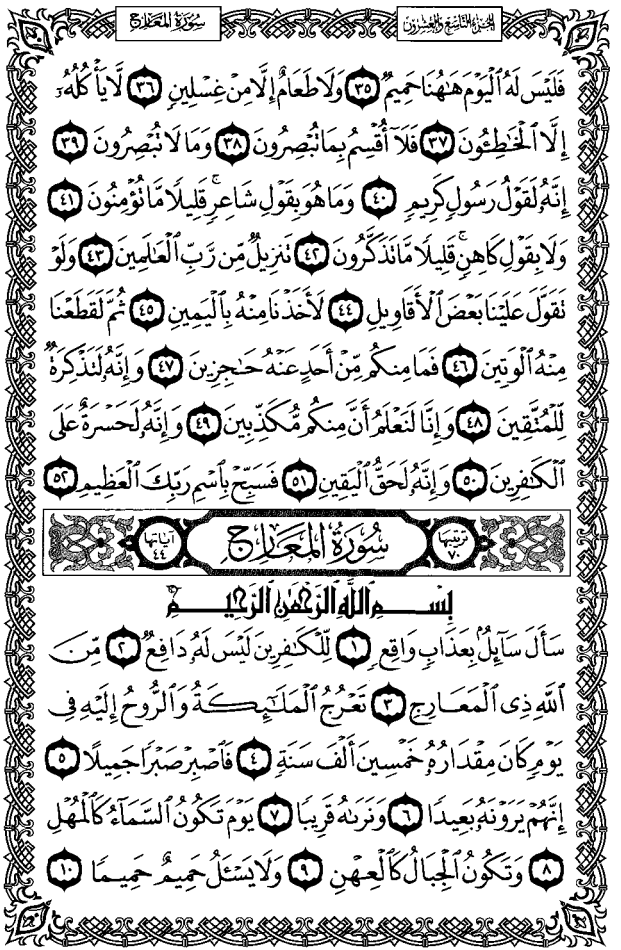 الجزء التاسع والعشرون
سورة المعارج
فَلَيْسَ لَهُ ٱلْيَوْمَ هَٰهُنَا حَمِيمٌ ٣٥ وَلَا طَعَامٌ إِلَّا مِنْ غِسْلِينٍ ٣٦ لَّا يَأْكُلُهُۥٓ
إِلَّا ٱلْخَٰطِـُٔونَ ٣٧ فَلَآ أُقْسِمُ بِمَا تُبْصِرُونَ ٣٨ وَمَا لَا تُبْصِرُونَ ٣٩
إِنَّهُۥ لَقَوْلُ رَسُولٍ كَرِيمٍ ٤٠ وَمَا هُوَ بِقَوْلِ شَاعِرٍ ۚ قَلِيلًا مَّا تُؤْمِنُونَ ٤١
وَلَا بِقَوْلِ كَاهِنٍ ۚ قَلِيلًا مَّا تَذَكَّرُونَ ٤٢ تَنزِيلٌ مِّن رَّبِّ ٱلْعَٰلَمِينَ ٤٣ وَلَوْ
تَقَوَّلَ عَلَيْنَا بَعْضَ ٱلْأَقَاوِيلِ ٤٤ لَأَخَذْنَا مِنْهُ بِٱلْيَمِينِ ٤٥ ثُمَّ لَقَطَعْنَا
مِنْهُ ٱلْوَتِينَ ٤٦ فَمَا مِنكُم مِّنْ أَحَدٍ عَنْهُ حَٰجِزِينَ ٤٧ وَإِنَّهُۥ لَتَذْكِرَةٌ
لِّلْمُتَّقِينَ ٤٨ وَإِنَّا لَنَعْلَمُ أَنَّ مِنكُم مُّكَذِّبِينَ ٤٩ وَإِنَّهُۥ لَحَسْرَةٌ عَلَى
ٱلْكَٰفِرِينَ ٥٠ وَإِنَّهُۥ لَحَقُّ ٱلْيَقِينِ ٥١ فَسَبِّحْ بِٱسْمِ رَبِّكَ ٱلْعَظِيمِ ٥٢
ترتيبها ٧٠ سُورَةُ المَعَارِج آياتها ٤٤
بِسْمِ ٱللَّهِ ٱلرَّحْمَٰنِ ٱلرَّحِيمِ
سَأَلَ سَآئِلٌۢ بِعَذَابٍ وَاقِعٍ ١ لِّلْكَٰفِرِينَ لَيْسَ لَهُۥ دَافِعٌ ٢ مِّنَ
ٱللَّهِ ذِى ٱلْمَعَارِجِ ٣ تَعْرُجُ ٱلْمَلَٰٓئِكَةُ وَٱلرُّوحُ إِلَيْهِ فِى
يَوْمٍ كَانَ مِقْدَارُهُۥ خَمْسِينَ أَلْفَ سَنَةٍ ٤ فَٱصْبِرْ صَبْرًا جَمِيلًا ٥
إِنَّهُمْ يَرَوْنَهُۥ بَعِيدًا ٦ وَنَرَىٰهُ قَرِيبًا ٧ يَوْمَ تَكُونُ ٱلسَّمَآءُ كَٱلْمُهْلِ
٨ وَتَكُونُ ٱلْجِبَالُ كَٱلْعِهْنِ ٩ وَلَا يَسْـَٔلُ حَمِيمٌ حَمِيمًا ١٠